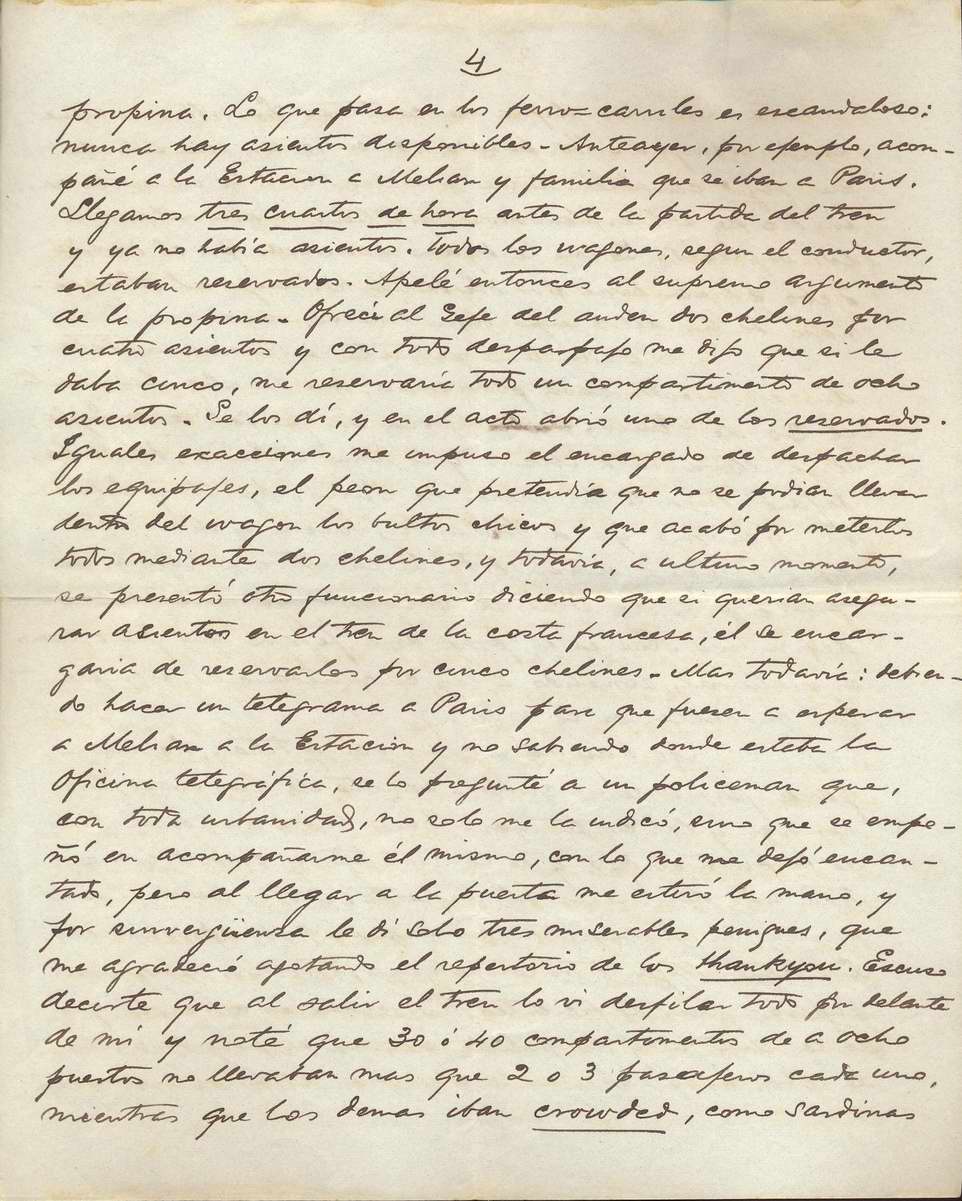 4
propina. Lo que pasa en los ferro=carriles es escandaloso:
nunca hay asientos disponibles - Anteayer, por ejemplo, acom-
pañé a la Estacion a Melian y familia que se iban a Paris.
Llegamos tres cuartos de hora antes de la partida del tren
y ya no habia asientos. Todos los wagones, segun el conductor,
estaban reservados. Apelé entonces al supremo argumento
de la propina - Ofrecí al Gefe del anden dos chelines por
cuatro asientos y con todo desparpajo me dijo que si le
daba cinco, me reservaria todo un compartimento de ocho
asientos - Se los dí, y en el acto abrió uno de los reservados.
Iguales exacciones me impuso el encargado de despachar
los equipajes, el peon que pretendia que no se podian llevar
dentro del wagon los bultos chicos y que acabó por meterlos
todos mediante dos chelines, y todavia, a ultimo momento,
se presentó otro funcionario diciendo que si querian asegu-
rar asientos en el tren de la costa francesa, él se encar-
garia de reservarlos por cinco chelines - Mas todavia: debien-
do hacer un telegrama a Paris para que fuesen a esperar
a Melian a la Estacion y no sabiendo donde estaba la
Oficina telegráfica, se lo pregunté a un policeman que,
con toda urbanidad, no solo me la indicó, sino que se empe-
ñó en acompañarme él mismo, con lo que me dejó encan-
tado, pero al llegar a la puerta me estiró la mano, y
por sinvergüenza le di solo tres miserables peniques, que
me agradeció agotando el repertorio de los thankyou. Escuso
decirte que al salir el tren lo vi desfilar todo por delante
de mí y noté que 30 ó 40 compartimentos de a ocho
puestos no llevaban mas que 2 o 3 pasajeros cada uno,
mientras que los demas iban crowded, como sardinas